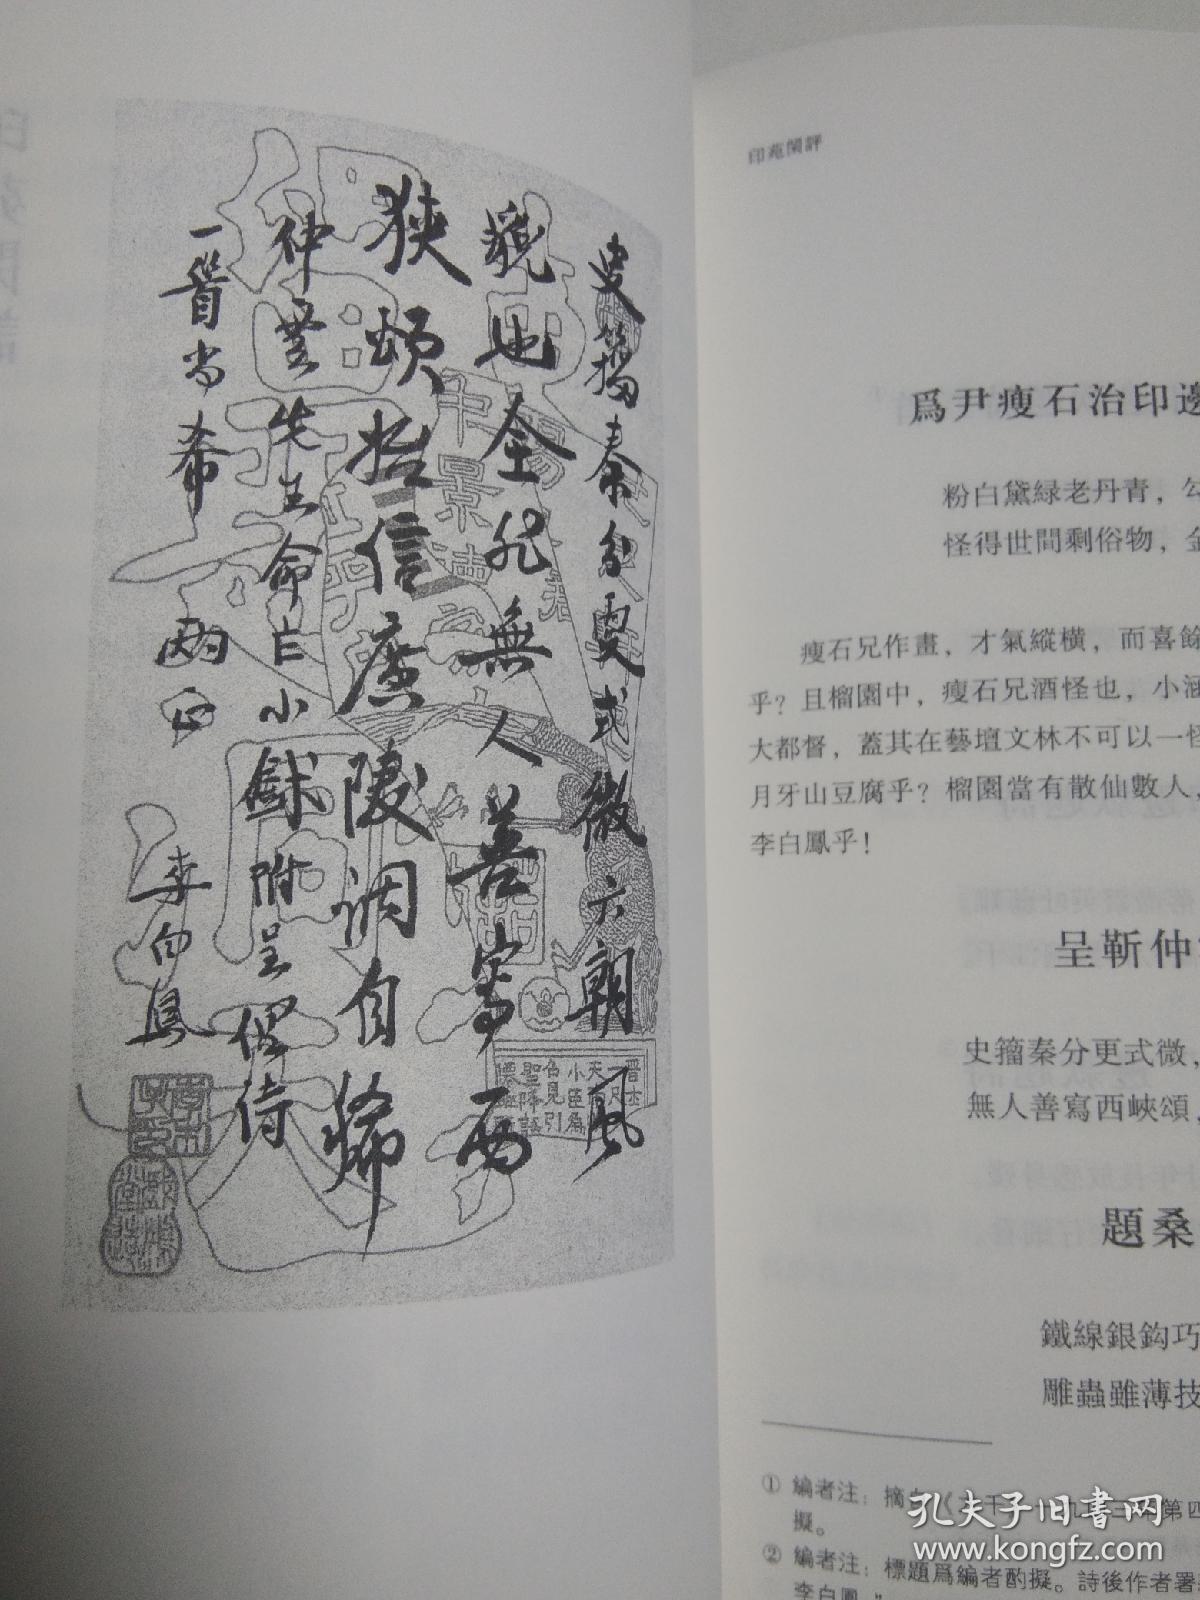 史籀秦分更式微六朝風
貌也全非無人善寫西
狹頌始信廣陵調自稀
仲雲先生命小鉥附呈偶詩
一首尚希 兩正
李白鳳
印苑閑評
爲尹瘦石治印邊
粉白黛緑老丹青，勾
怪得世間剩俗物，金
瘦石兄作畫，才氣縱橫，而喜餘
乎？且榴園中，瘦石兄酒怪也，小涵
大都督，蓋其在藝壇文林不可以一怪
月牙山豆腐乎？榴園當有散仙數人，
李白鳳乎！
呈靳仲
史籀秦分更式微，
無人善寫西峽頌，
題桑
鐵線銀鈎巧
雕蟲雖薄技
① 編者注：摘自《第四
擬。
② 編者注：標題爲編者酌擬。詩後作者署
李白鳳。"
孔夫子旧书网
www.kongfz.com